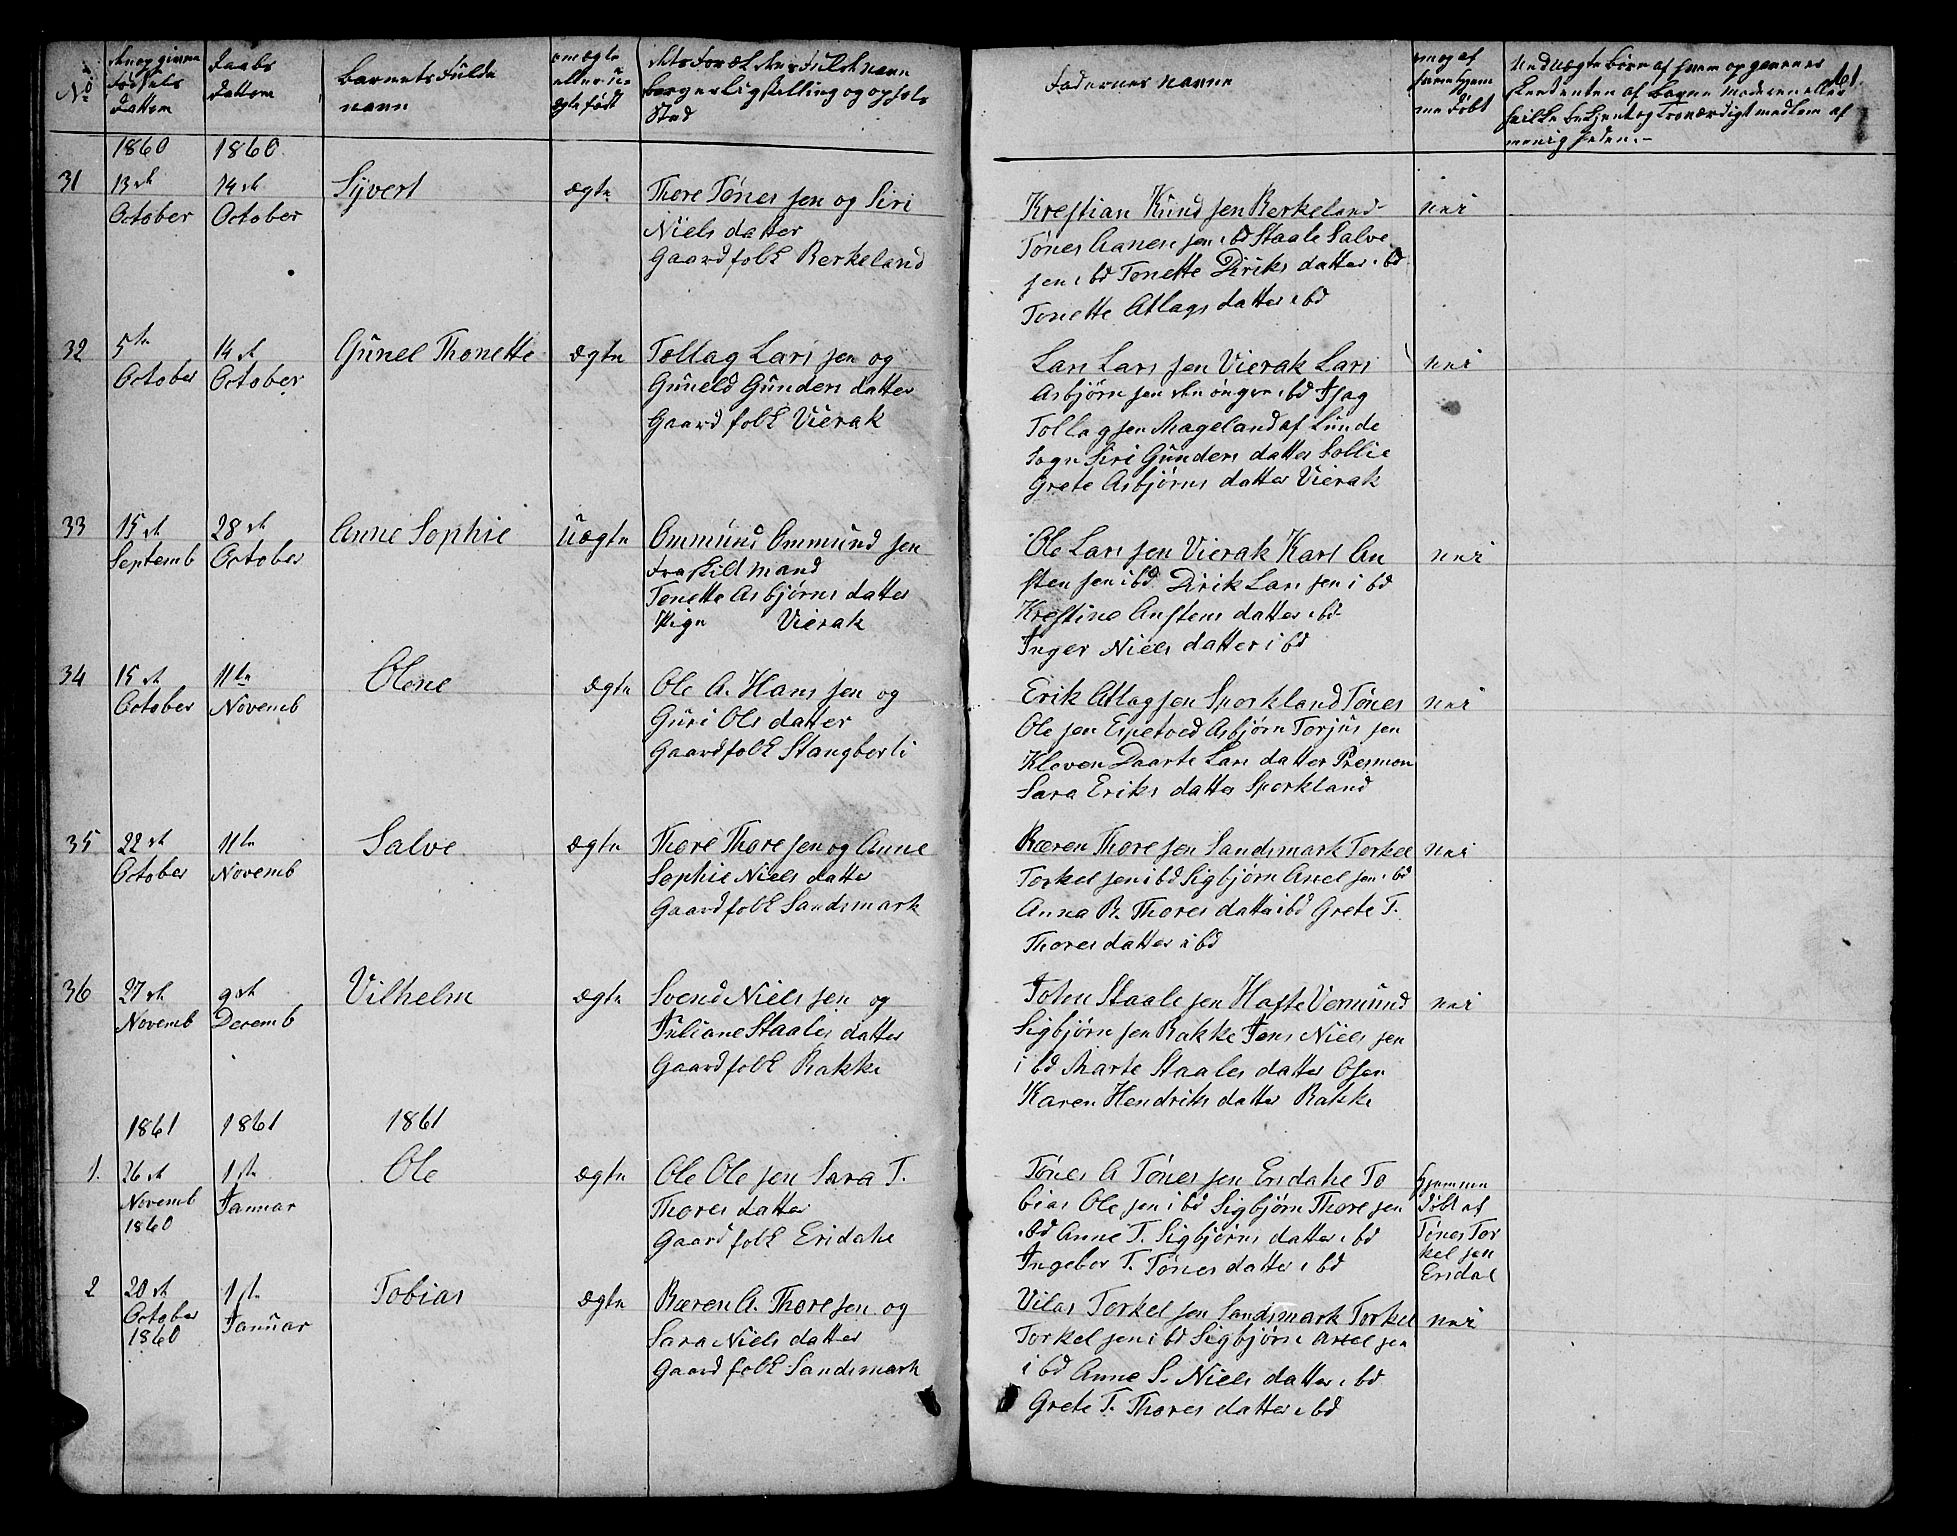 No
den opgivne
Fødsels
Dattom
Daabs
Dattom
Barnets Fulde
navn
om ægte
eller u-
ægte født
dets Forældres Fulde navn
borgerlig stilling og ophols
Sted
Fadernes navne
om og af
hvem hjem
me døbt
61.
1860 1860
31
13de
October
14de
October
Syvert
ægte
Thore Tønes sen og Siri
Niels datter
Gaardfolk Berkeland
Krestian Knud sen Berkeland
Tønes Aanen sen ibd Staale Salve
sen ibd Tonette Diriks datter ibd
Tonette Atlags datter ibd
nei
32
5te
October
14de
October
Gunel Thonette
ægte
Tollag Lars sen og
Guneld Gunders datter
Gaardfolk Vierak
Lars Lars sen Vierak Lars
Asbjørn sen den öngre ibd Isag
Tollag sen Mageland af Lunde
Sogn Siri Gunders datter Sollie
Grete Asbjørns datter Vierak
nei
33
15de
Septemb
28de
October
Anne Sophie
Uægte
Ommund Ommund sen
Fraskilt mand
Tonette Asbjørns datter
Pige Vierak
Ole Lars sen Vierak Karl An
sten sen ibd Dirik Lars sen ibd
Krestine Anstens datter ibd
Inger Niels datter ibd
nei
34
15de
October
11te
Novemb
Olene
ægte
Ole A. Hans sen og
Guri Ols datter
Gaardfolk Stangberli
Erik Atlag sen Sporkland Tønes
Ole sen Espetved Asbjørn Torjus sen
Kleven Daarte Lars datter Presmon
Sara Eriks datter Sporkland
nei
35
22de
October
11te
Novemb
Salve
ægte
Thore Thore sen og Anne
Sophie Niels datter
Gaardfolk Sandsmark
Bæren Thore sen Sandsmark Torkel
Torkel sen ibd Sigbjørn Axel sen ibd
Anna B. Thores datter ibd Grete T.
Thores datter ibd
nei
36
27de
Novemb
9de
Decemb
Vilhelm
ægte
Svend Niels sen og
Juliane Staales datter
Gaardfolk Bakke
John Staale sen Hafte Vermund
Sigbjørn sen Bakke Jens Niels sen
ibd Marte Staales datter Osen
Karen Hendriks datter Bakke
nei
1861 1861 1861
1.
26de
Novemb
1860
1ste
Januar
Ole
ægte
Ole Ole sen Sara T.
Thores datter
Gaardfolk Erisdahe
Tønes A Tønes sen Ersdahe To
bias Ole sen ibd Sigbjørn Thore sen
ibd Anne T. Sigbjørns datter ibd
Ingebor T. Tønes datter ibd
hjemme
døbt af
Tønes Tor
kel sen
Ersdal
2
20de
October
1860
1ste
Januar
Tobias
ægte
Bæren A. Thore sen og
Sara Niels datter
Gaardfolk Sandsmark
Vilas Torkel sen Sandsmark Torkel
Torkel sen ibd Sigbjørn Axel sen
ibd Anne S. Niels datter ibd
Grete T. Thores datter ibd
nei